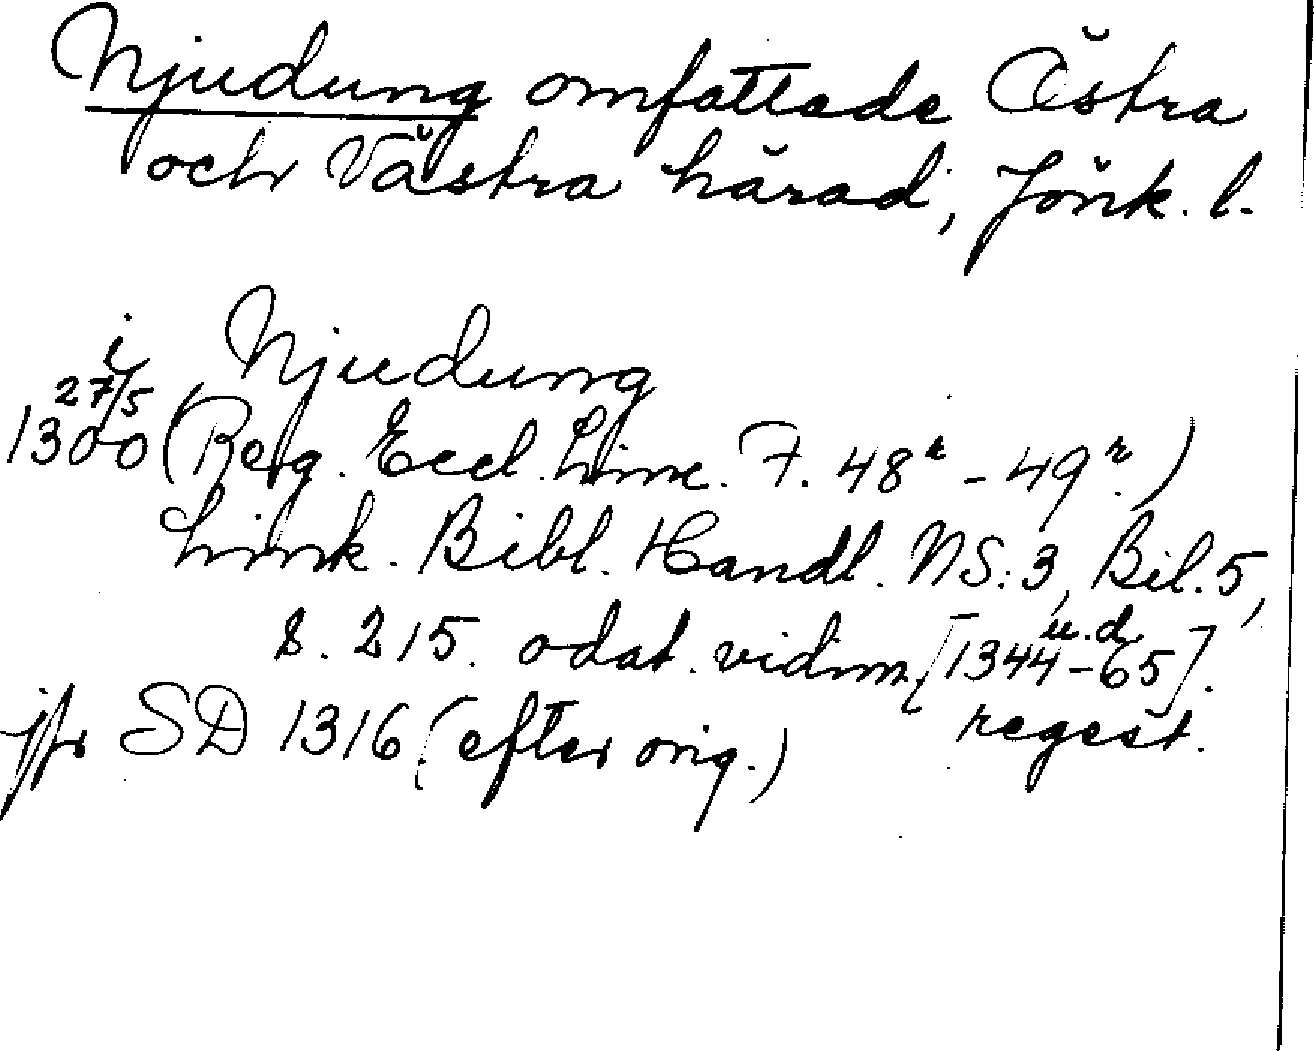 Njudung omfattade Östra
och Västra härad, Jönk. l.
i Njudung
27/5
1300 (Reg. Eccl. Linc. F. 48r - 49r.)
Link. Bibl. Handl. NS: 3, Bil. 5,
s. 215. odat. vidim. [1344-65]. u.d.
regest.
jfr SD 1316 (efter orig.)